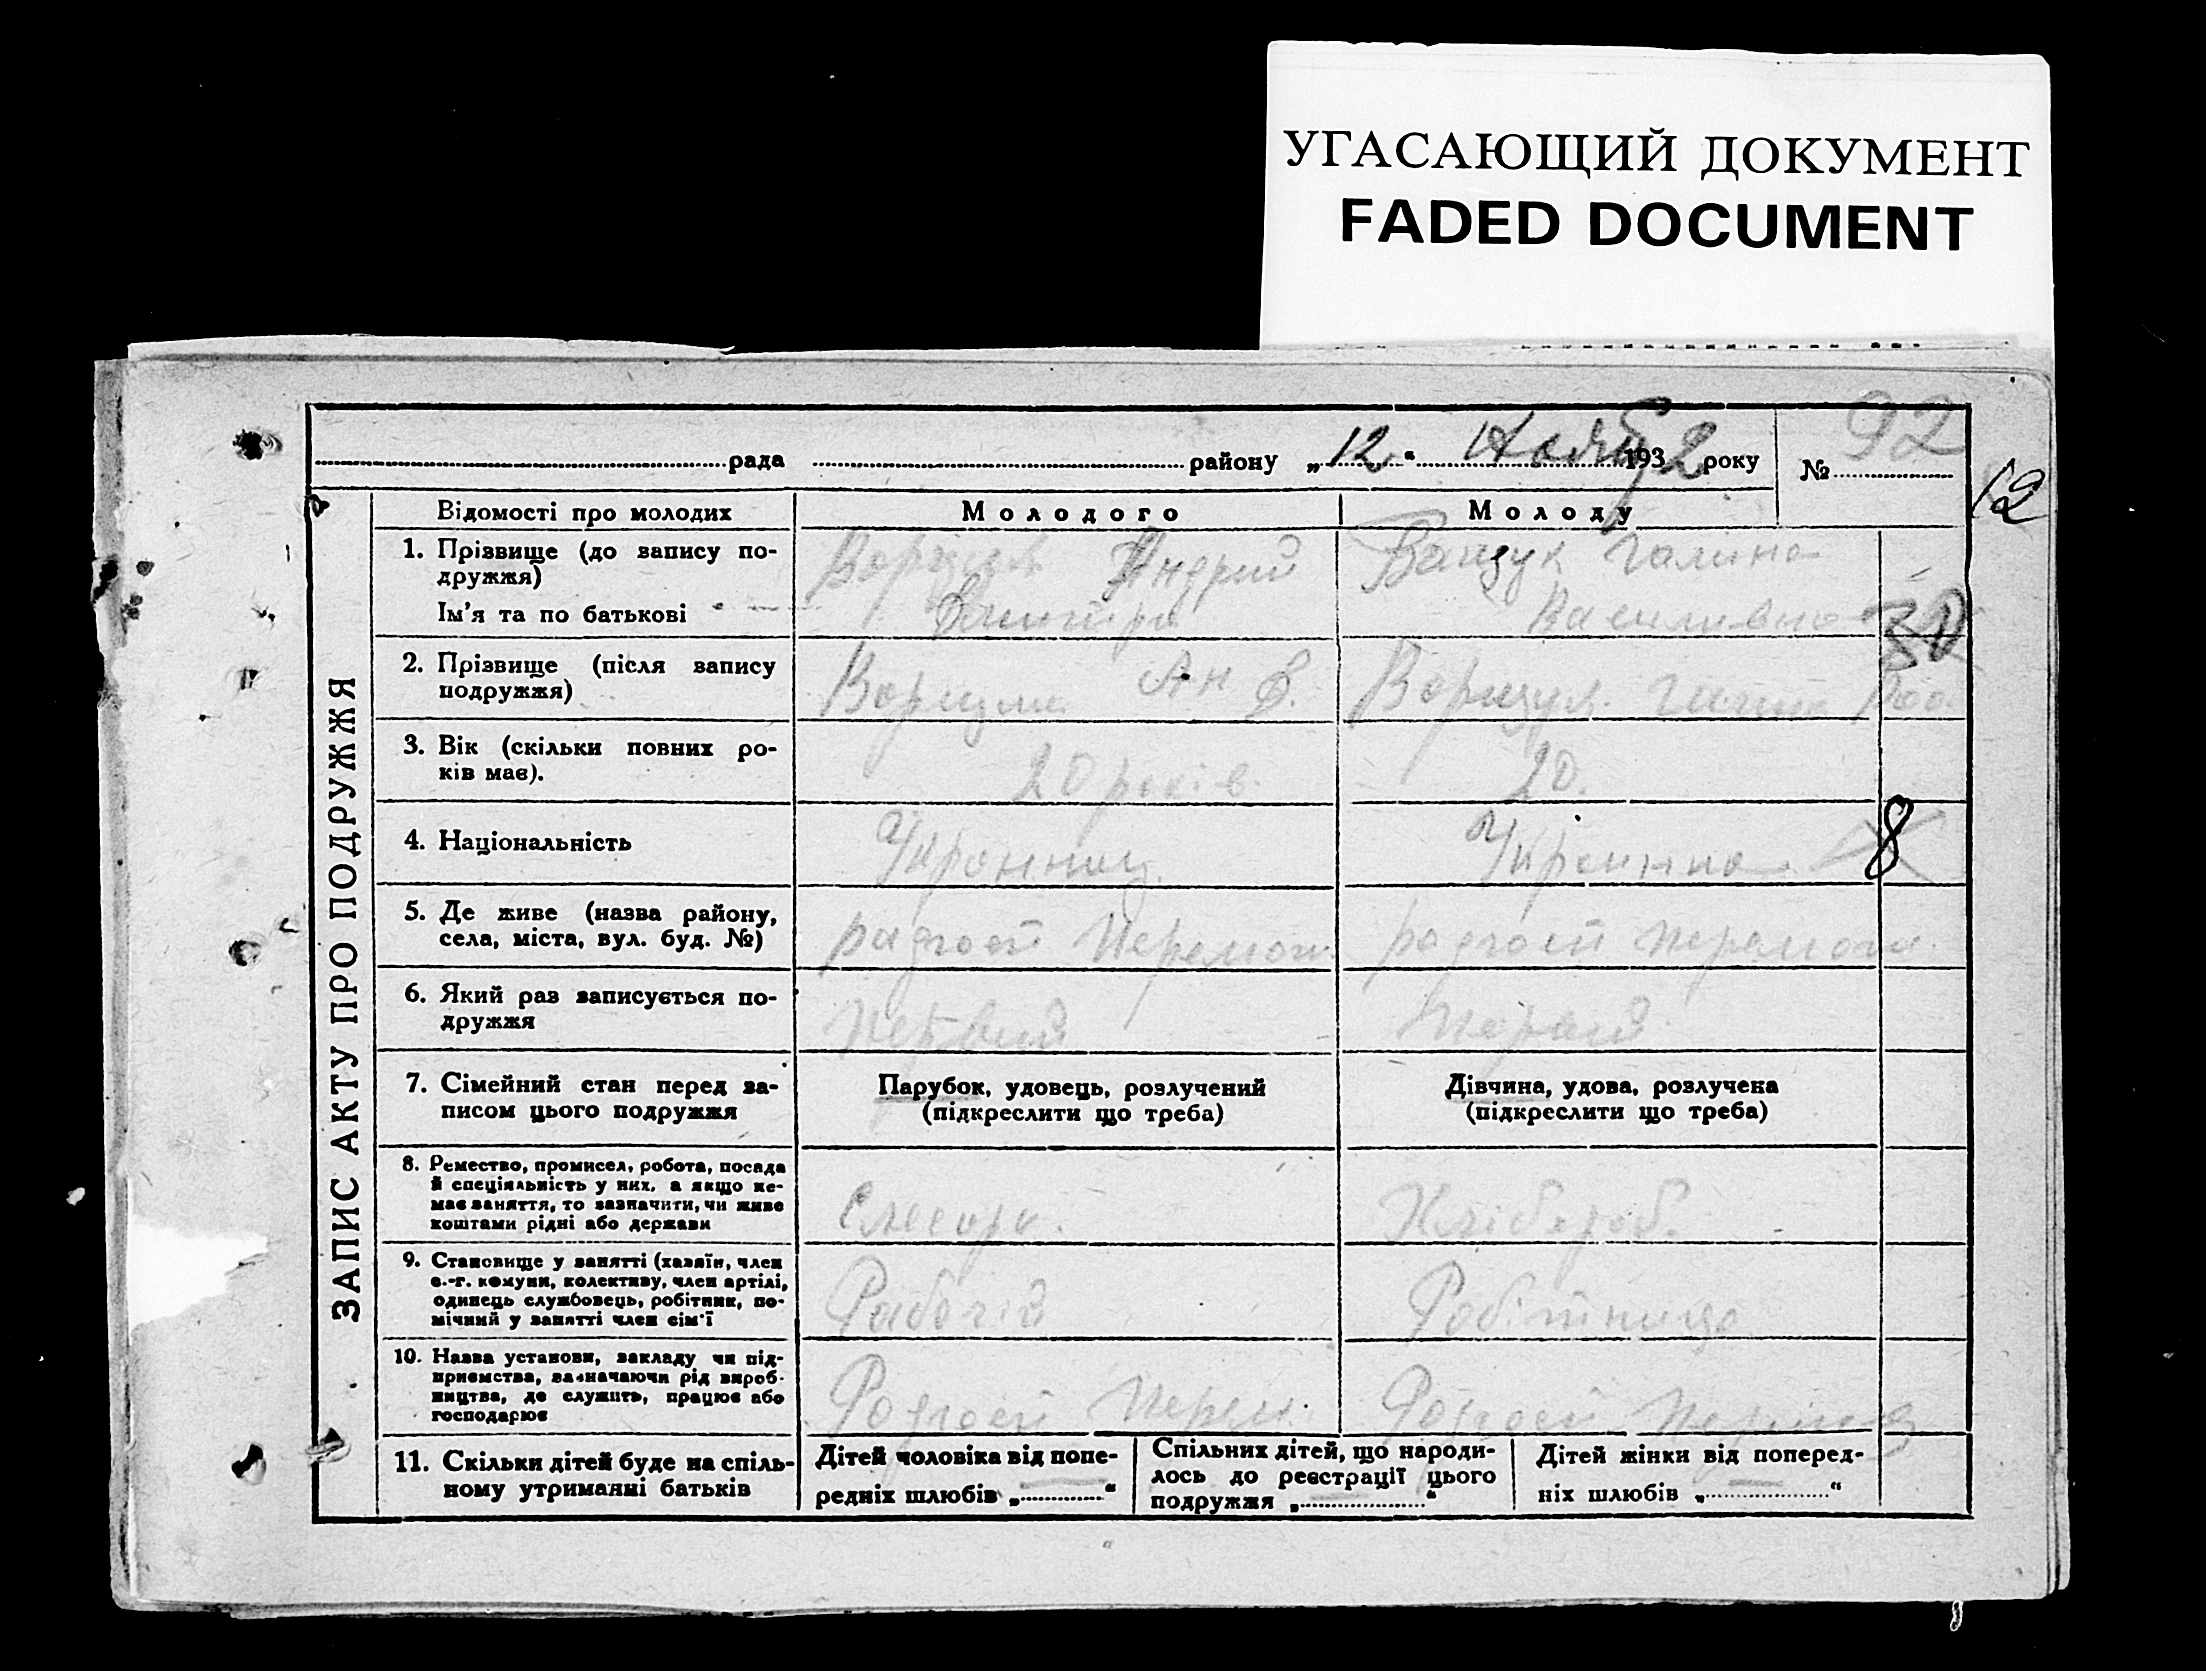 УГАСАЮЩИЙ ДОКУМЕНТ
FADED DOCUMENT
рада району „12“ Нояб 1932 року № 92
12
ЗАПИС АКТУ ПРО ПОДРУЖЖЯ
Відомості про молодих Молодого Молоду
1. Прізвище (до запису по-
дружжя)
Андрий
Ващук Галина
Ім'я та по батькові
Дмитро
Василивна
30
2. Прізвище (після запису
подружжя)
Ан Д.
Ворищук
3. Вік (скільки повних ро-
ків має).
20 років.
20.
4. Національність
Украинец
Украинка
8
5. Де живе (назва району,
села, міста, вул. буд. №)
радгосп Перемога
радгосп Перемога
6. Який раз записується по-
дружжя
Первий
Перший
7. Сімейний стан перед за-
писом цього подружжя
Парубок, удовець, розлучений
(підкреслити що треба)
Дівчина, удова, розлучена
(підкреслити що треба)
8. Ремество, промисел, робота, посада
й спеціяльність у них, а якщо не-
має заняття, то зазначити, чи живе
коштами рідні або держави
Слесарь.
Хлібороб.
9. Становище у занятті (хазяїн, член
с.-г. комуни, колективу, член артілі,
одинець службовець, робітник, по-
мічний у занятті член сім'ї
Рабочій
Робітниця
10. Назва установи, закладу чи під-
приємства, зазначаючи рід вироб-
ництва, де служить, працює або
господарює
Радгосп Перем.
Радгосп
11. Скільки дітей буде на спіль-
ному утриманні батьків
Дітей чоловіка від попе-
редніх шлюбів „—“
Спільних дітей, що народи-
лось до реєстрації цього
подружжя „—“
Дітей жінки від поперед-
ніх шлюбів „—“